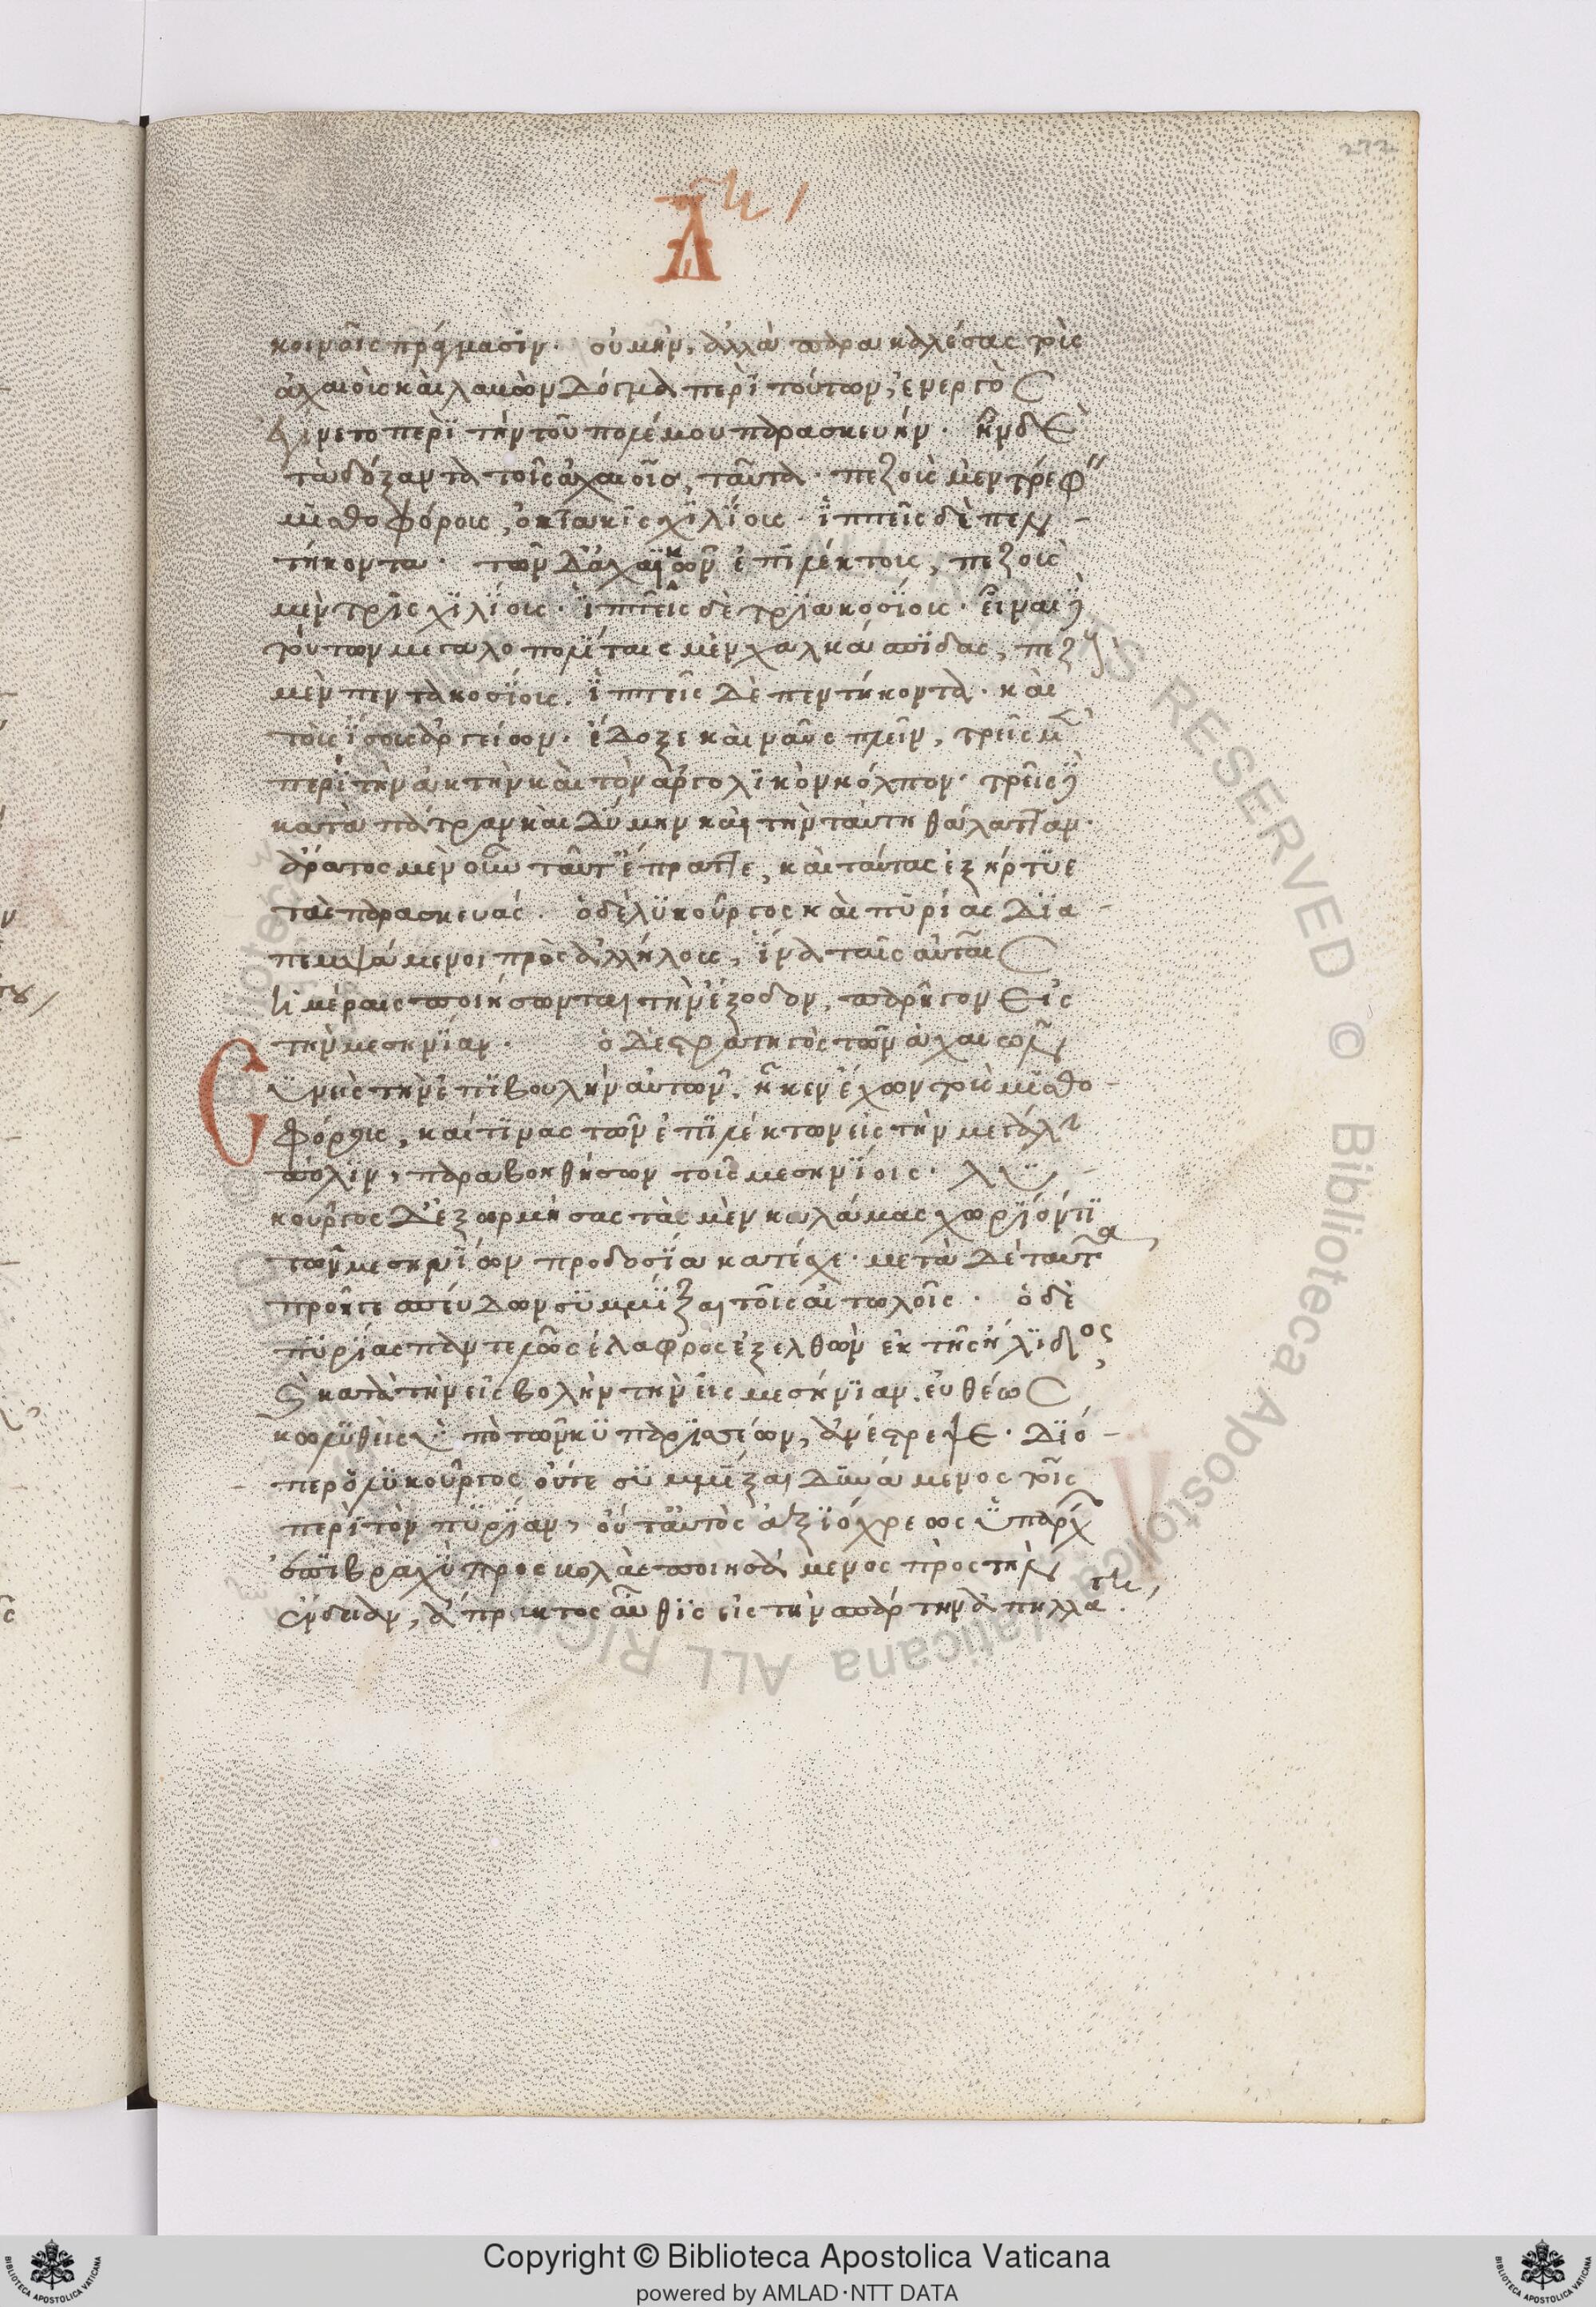 272
κοινοῖς πράγμασιν. οὐ μὴν, ἀλλὰ παρακαλέσας τοὺς
ἀχαιοὺς καὶ λαβὼν δόγμα περὶ τούτων, ἐνεργὸς
ἐγίνετο περὶ τὴν τοῦ πολέμου παρασκευήν. ἦν δὲ
τὰ δόξαντα τοῖς ἀχαιοῖς, ταῦτα. πεζοὺς μὲν τρέφειν
μισθοφόρους, ὀκτακισχιλίους. ἱππεῖς δὲ πεν-
τήκοντα. τῶν δ' ἀχαϊκῶν ἐπιλέκτους, πεζοὺς
μὲν τρισχιλίους. ἱππεῖς δὲ τριακοσίους. εἶναι δὲ
τούτων μεγαλοπολίτας μὲν χαλκάσπιδας, πεζοὺς
μὲν πεντακοσίους. ἱππεῖς δὲ πεντήκοντα. καὶ
τοὺς ἴσους ἀργείων. ἔδοξε καὶ ναῦς πλεῖν, τρεῖς μὲν
περὶ τὴν ἀκτὴν καὶ τὸν ἀργολικὸν κόλπον. τρεῖς δὲ
κατὰ πάτραν καὶ δύμην καὶ τὴν ταύτη θάλατταν.
ἄρατος μὲν οὖν ταῦτ' ἔπραττε, καὶ ταύτας ἐξήρτυε
τὰς παρασκευάς. ὁ δὲ λυκοῦργος καὶ πυρίας δια-
πεμψάμενοι πρὸς ἀλλήλους, ἵνα ταῖς αὐταῖς
ἡμέραις ποιήσωνται τὴν ἔξοδον, παρῆγον εἰς
τὴν μεσηνίαν. ὁ δὲ στρατηγὸς τῶν ἀχαιῶν
Cυνεὶς τὴν ἐπιβουλὴν αὐτῶν, ἧκεν ἔχων τοὺς μισθο-
φόρους, καί τινας τῶν ἐπιλέκτων εἰς τὴν μεγάλην
πόλιν, παραβοηθήσων τοῖς μεσηνίοις. λυ-
κοῦργος δ' ἐξορμήσας τὰς μὲν καλάμας χωρίόν τι
τῶν μεσηνίων προδοσία κατέσχε. μετὰ δὲ ταῦτα
προῆγε σπεύδων συμμίξαι τοῖς αἰτωλοῖς. ὁ δὲ
πυρίας παντελῶς ἐλαφρὸς ἐξελθὼν ἐκ τῆς ἤλιδος
καὶ κατὰ τὴν εἰσβολὴν τὴν εἰς μεσήνιαν, εὐθέως
κωλυθεὶς ὑπὸ τῶν κυπαρισσέων, ἀνέστρεψε. διό-
περ ὁ λυκοῦργος οὔτε συμμίξαι δυνάμενος τοῖς
περὶ τὸν πυρίαν, οὔτ' αὐτὸς ἀξιόχρεως ὑπάρχων
ἐπὶ βραχὺ προσβολὰς ποιησάμενος πρὸς τὴν
ἄνδαιαν, ἄπρακτος αὖθις εἰς τὴν σπάρτην ἀπηλλάτη